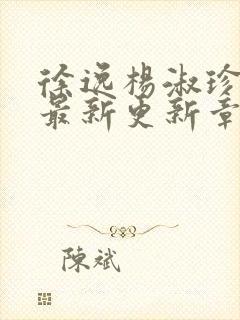 徐逸楊淑珍
最新更新章
陳斌